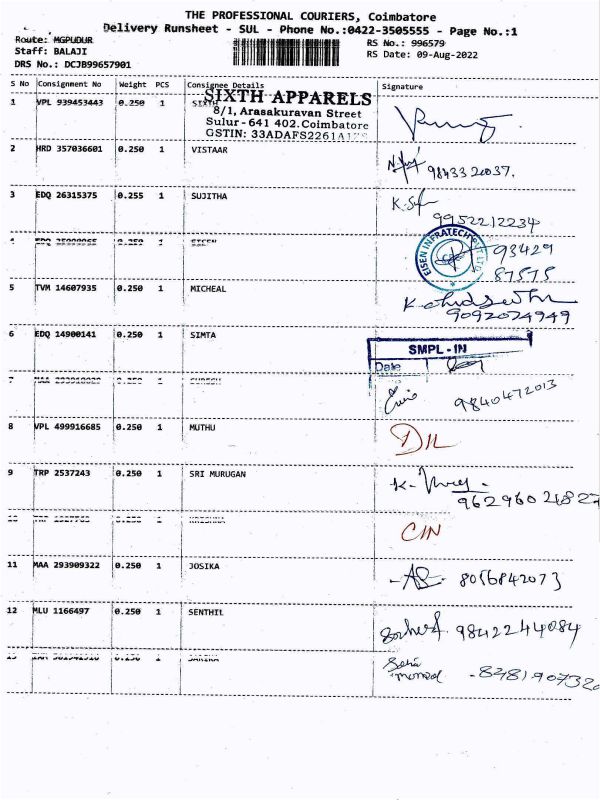 THE PROFESSIONAL COURIERS, Coimbatore
Delivery Runsheet - SUL - Phone No.:0422-3505555 - Page No.:1
Route: MGPUDUR
RS No.: 996579
Staff: BALAJI
RS Date: 09-Aug-2022
DRS No.: DCJB99657901
S No Consignment No Weight PCS Consignee Details Signature
1 VPL 939453443 0.250 1 SIXTH
SIXTH APPARELS
8/1, Arasakuravan Street
Sulur - 641 402. Coimbatore
GSTIN: 33ADAFS2261A1ZS
2 HRD 357036601 0.250 1 VISTAAR
3 EDQ 26315375 0.255 1 SUJITHA
9952212234
4 EISEN
EISEN INFRATECH PVT LTD
93429
87575
5 TVM 14607935 0.250 1 MICHEAL
9092024949
6 EDQ 14900141 0.250 1 SIMTA
SMPL - IN
Date
7 SURESH 9840472013
8 VPL 499916685 0.250 1 MUTHU DIL
9 TRP 2537243 0.250 1 SRI MURUGAN
10 KRISHNA CIN
11 MAA 293909322 0.250 1 JOSIKA 8056842073
12 MLU 1166497 0.250 1 SENTHIL 9842244084
13